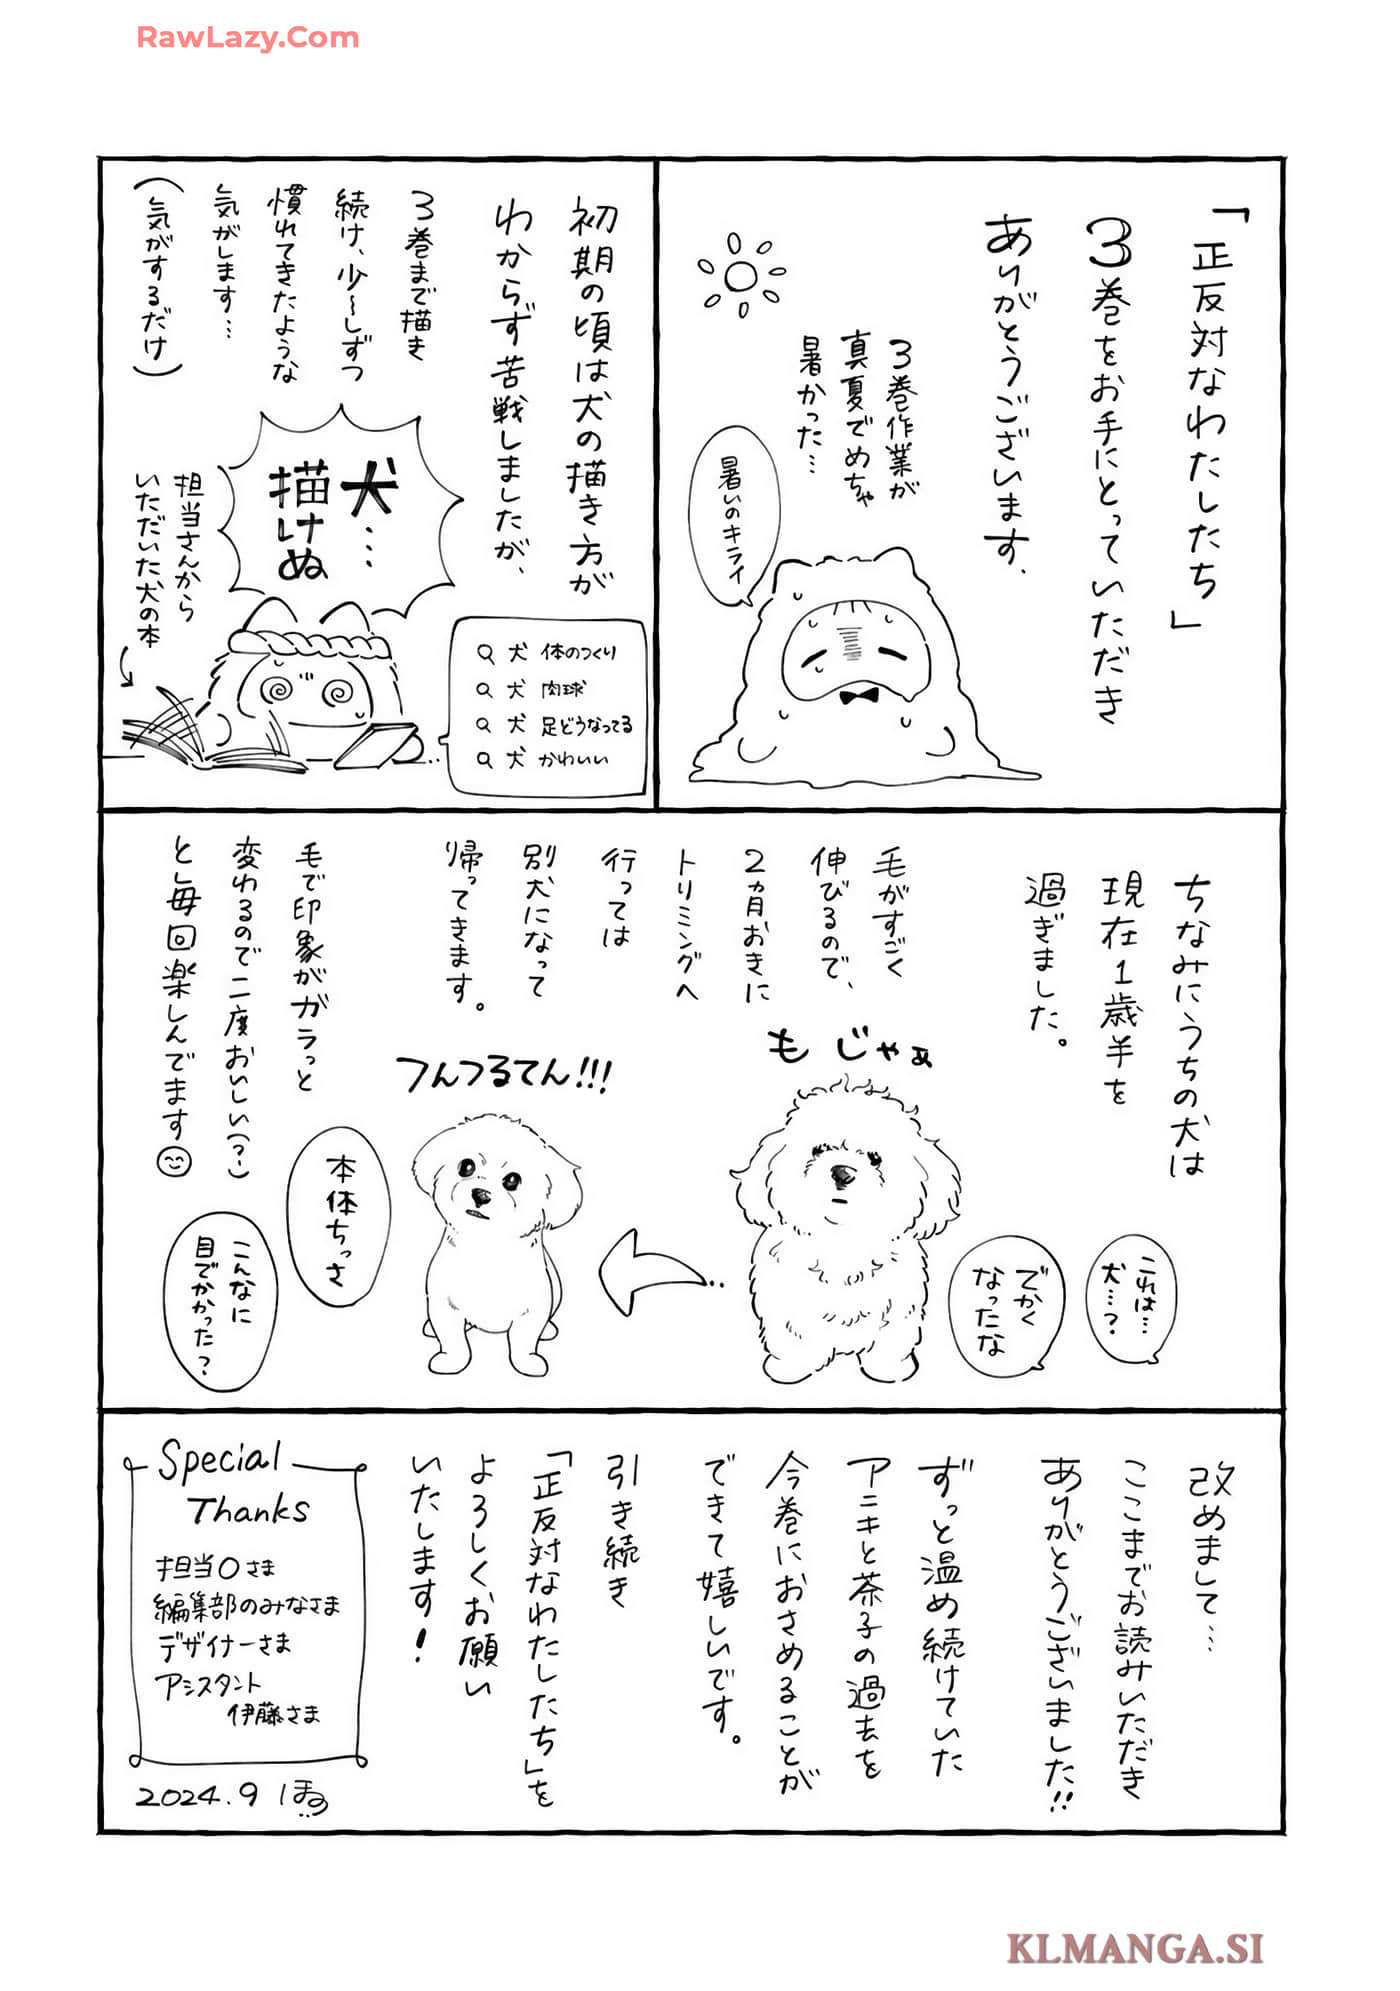 RawLazy.Com
「正反対なわたしたち」
3巻をお手にとっていただき
ありがとうございます.
3巻作業が
真夏でめちゃ
暑かった…
暑いのキライ
初期の頃は犬の描き方が
わからず苦戦しましたが、
3巻まで描き
続け、少〜しずつ
慣れてきたような
気がします…
(気がするだけ)
犬…
描けぬ
担当さんから
いただいた犬の本
犬 体のつくり
犬 肉球
犬 足どうなってる
犬 かわいい
ちなみにうちの犬は
現在1歳半を
過ぎました。
毛がすごく
伸びるので、
2ヵ月おきに
トリミングへ
行っては
別犬になって
帰ってきます。
もじゃぁ
これは…
犬…?
でかく
なったな
つんつるてん!!!
本体ちっさ
こんなに
目でかかった?
毛で印象がガラっと
変わるので二度おいしい(?)
と、毎回楽しんでます
改めまして…
ここまでお読みいただき
ありがとうございました!!
ずっと温め続けていた
アニキと茶子の過去を
今巻におさめることが
できて嬉しいです。
引き続き
「正反対なわたしたち」を
よろしくお願い
いたします!
Special
Thanks
担当Oさま
編集部のみなさま
デザイナーさま
アシスタント
伊藤さま
2024.9
KLMANGA.SI